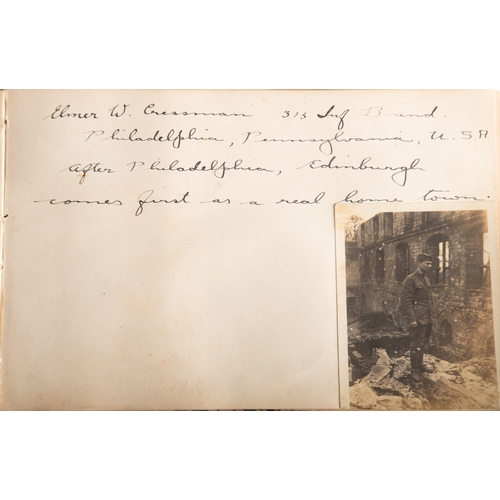 Elmer W. Cressman 315 Inf Band.
Philadelphia, Pennsylvania, U.S.A
After Philadelphia, Edinburgh
comes first as a real home town.